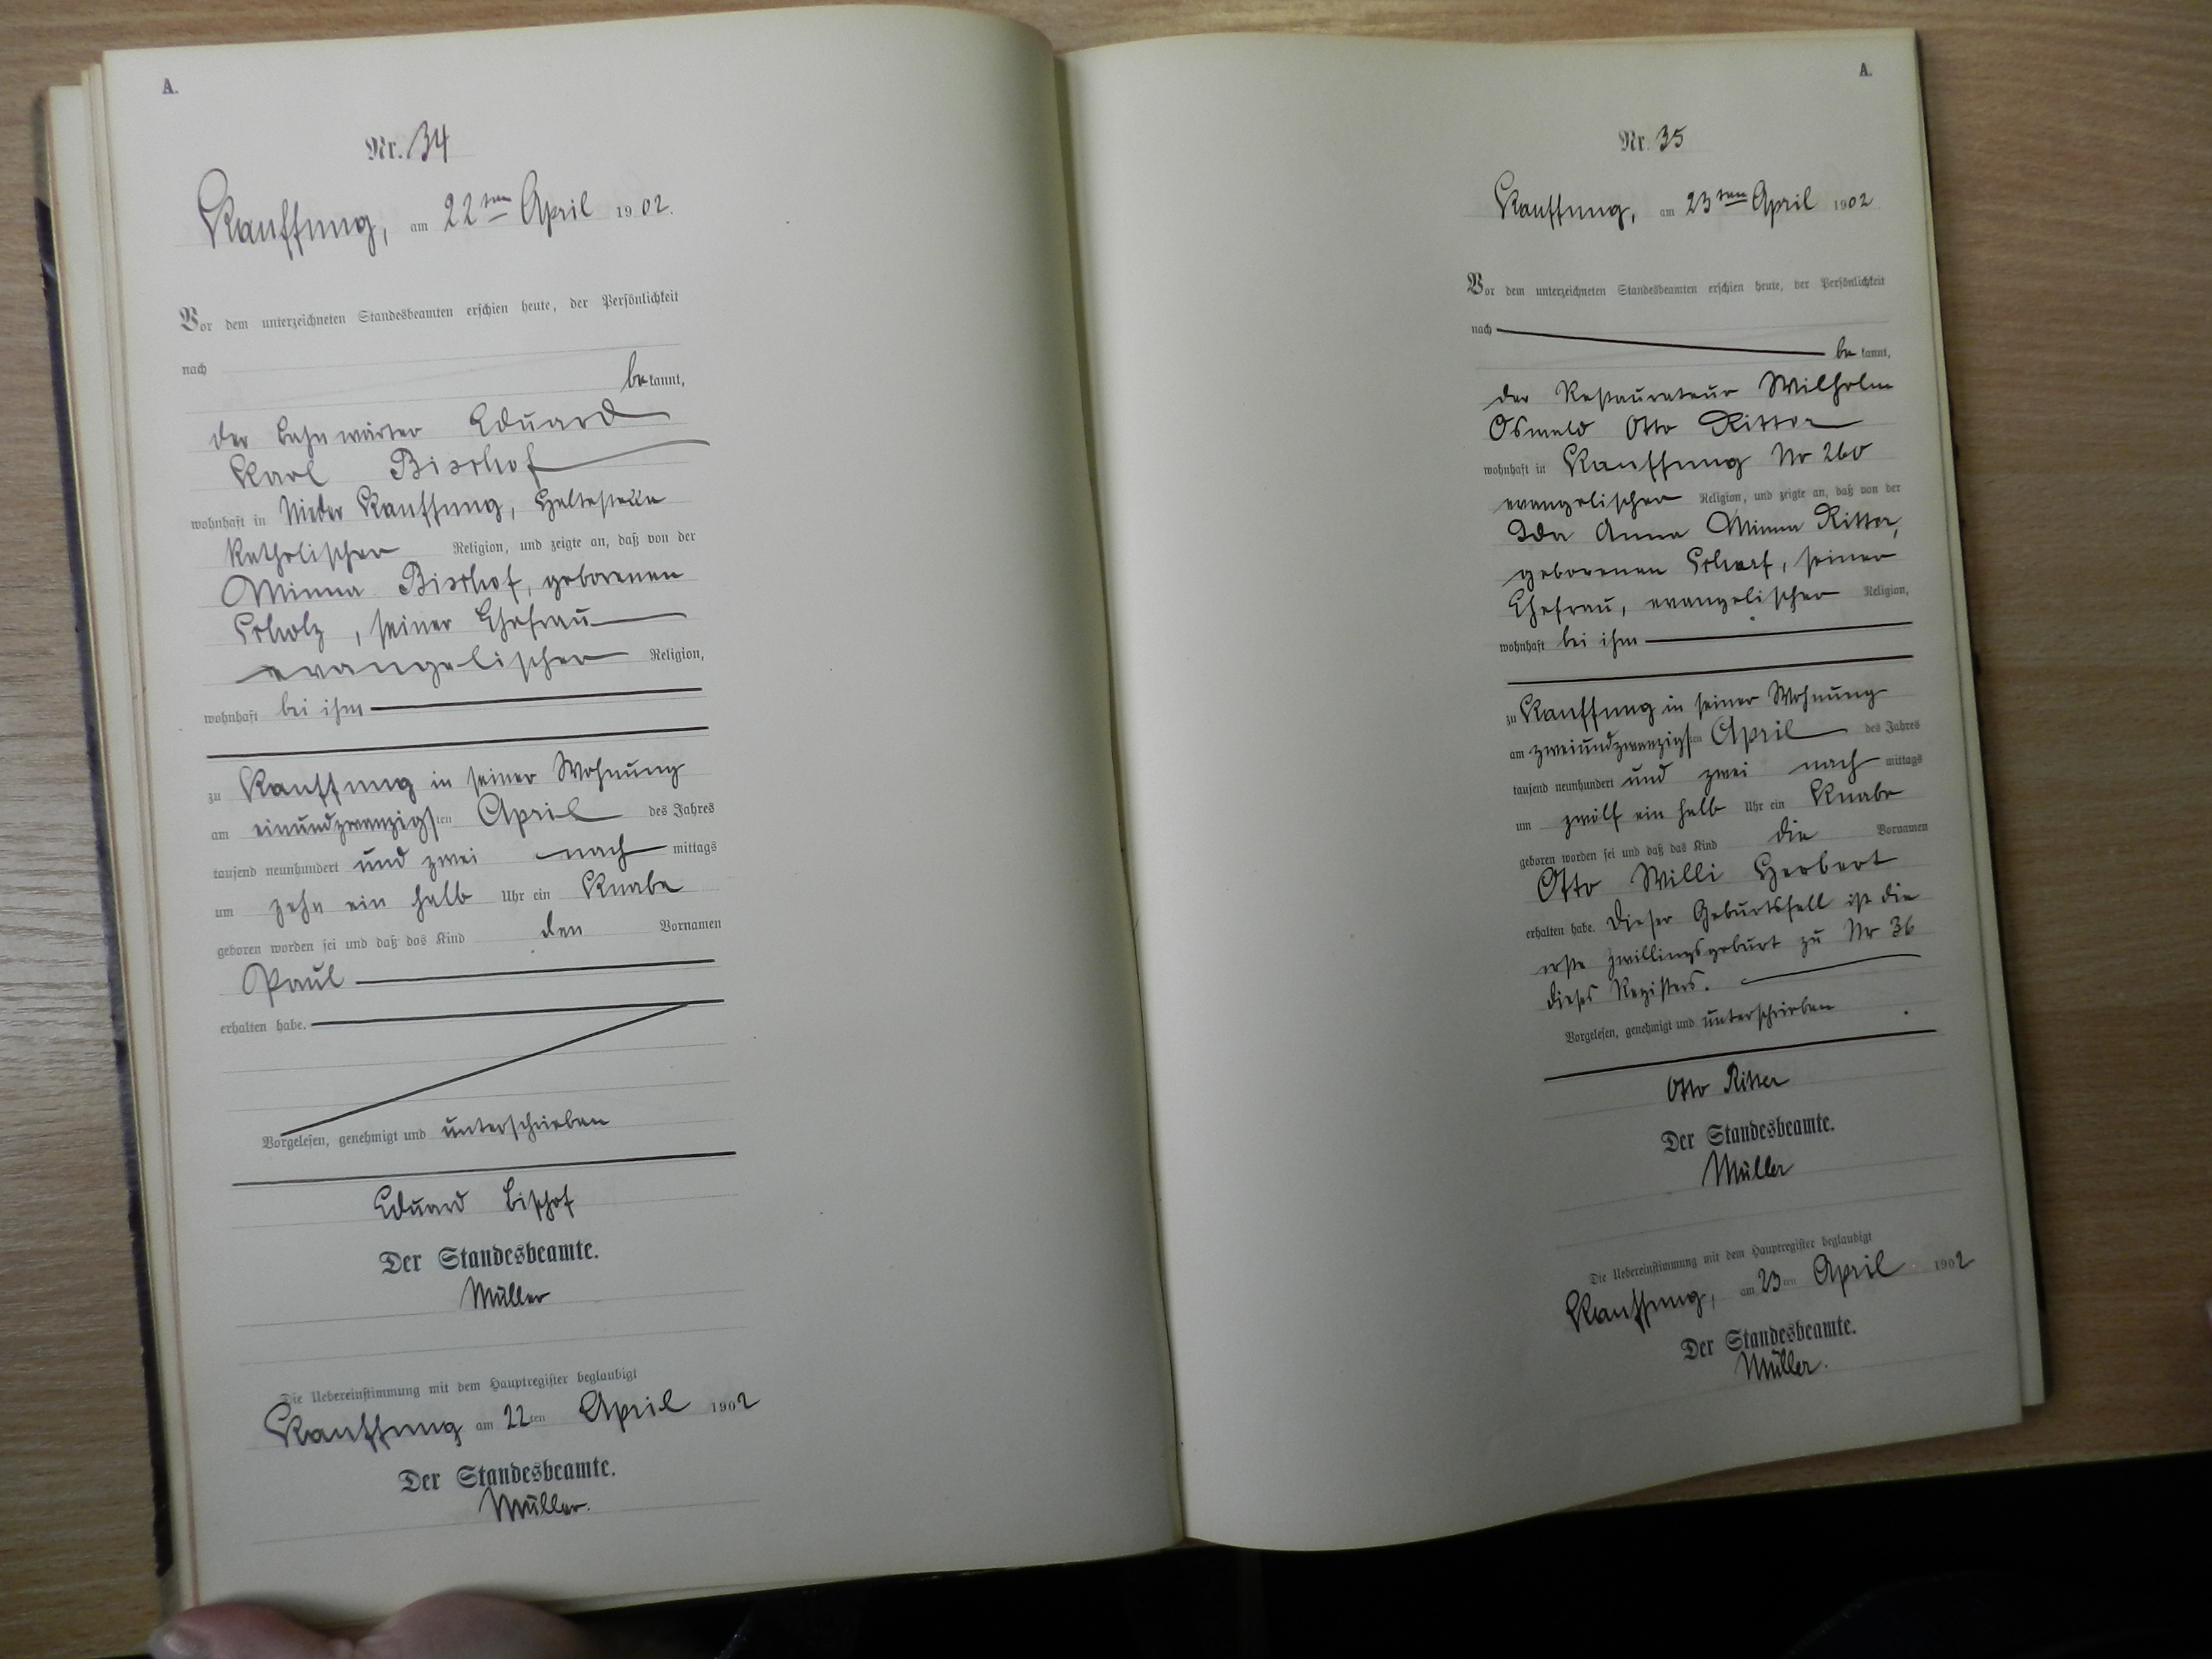 A.
Nr. 34
Kauffung, am 22ten April 1902.
Vor dem unterzeichneten Standesbeamten erschien heute, der Persönlichkeit
nach
bekannt,
der Bahnwärter Eduard
Karl Bischof
wohnhaft in Nieder Kauffung, Haltestelle
katholischer Religion, und zeigte an, daß von der
Minna Bischof, geborenen
Scholz, seiner Ehefrau
evangelischer Religion,
wohnhaft bei ihm
zu Kauffung in seiner Wohnung
am einundzwanzigsten April des Jahres
tausend neunhundert und zwei nachmittags
um zehn ein halb Uhr ein Knabe
geboren worden sei und daß das Kind den Vornamen
Paul
erhalten habe.
Vorgelesen, genehmigt und unterschrieben
Eduard Bischof
Der Standesbeamte.
Müller
Die Uebereinstimmung mit dem Hauptregister beglaubigt
Kauffung am 22ten April 1902
Der Standesbeamte.
Müller.
A.
Nr. 35
Kauffung, am 23ten April 1902
Vor dem unterzeichneten Standesbeamten erschien heute, der Persönlichkeit
nach
bekannt,
der Restaurateur Wilhelm
Oswald Otto Ritter
wohnhaft in Kauffung Nr 260
evangelischer Religion, und zeigte an, daß von der
Ida Anna Minna Ritter,
geborenen Scharf, seiner
Ehefrau, evangelischer Religion,
wohnhaft bei ihm
zu Kauffung in seiner Wohnung
am zweiundzwanzigsten April des Jahres
tausend neunhundert und zwei nachmittags
um zwölf ein halb Uhr ein Knabe
geboren worden sei und daß das Kind die Vornamen
Otto Willi Herbert
erhalten habe. Dieser Geburtsfall ist die
erste Zwillingsgeburt zu Nr 36
dieses Registers.
Vorgelesen, genehmigt und unterschrieben
Otto Ritter
Der Standesbeamte.
Müller
Die Uebereinstimmung mit dem Hauptregister beglaubigt
Kauffung, am 23ten April 1902
Der Standesbeamte.
Müller.